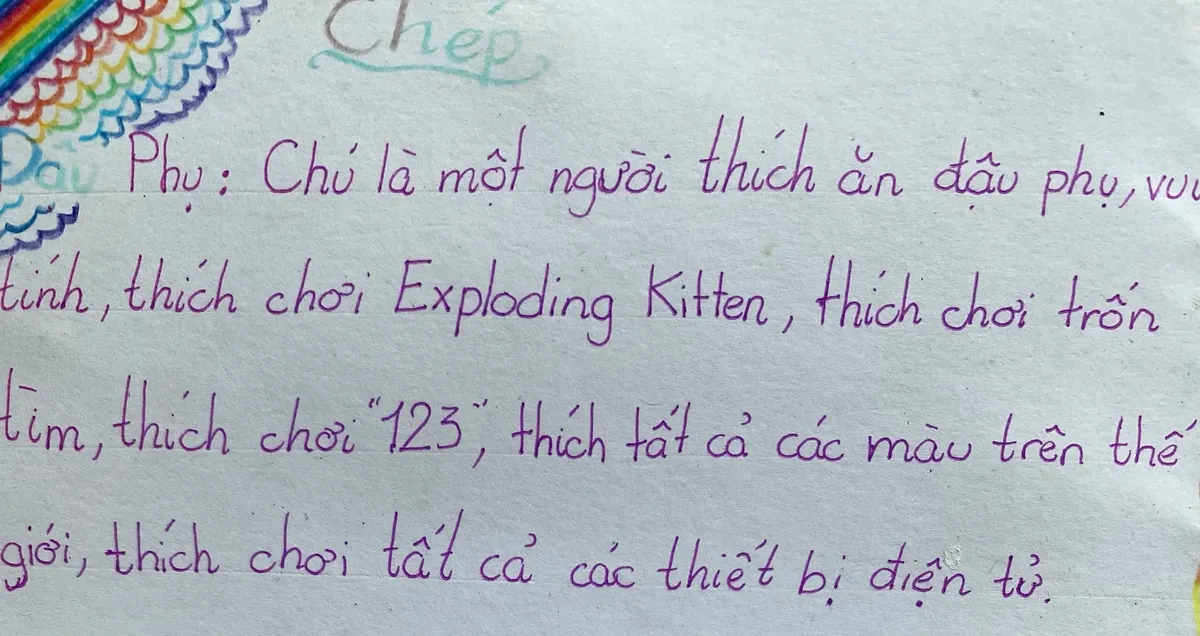 Chép
Đậu Phụ: Chú là một người thích ăn đậu phụ, vui
tính, thích chơi Exploding Kitten, thích chơi trốn
tìm, thích chơi "123", thích tất cả các màu trên thế
giới, thích chơi tất cả các thiết bị điện tử.